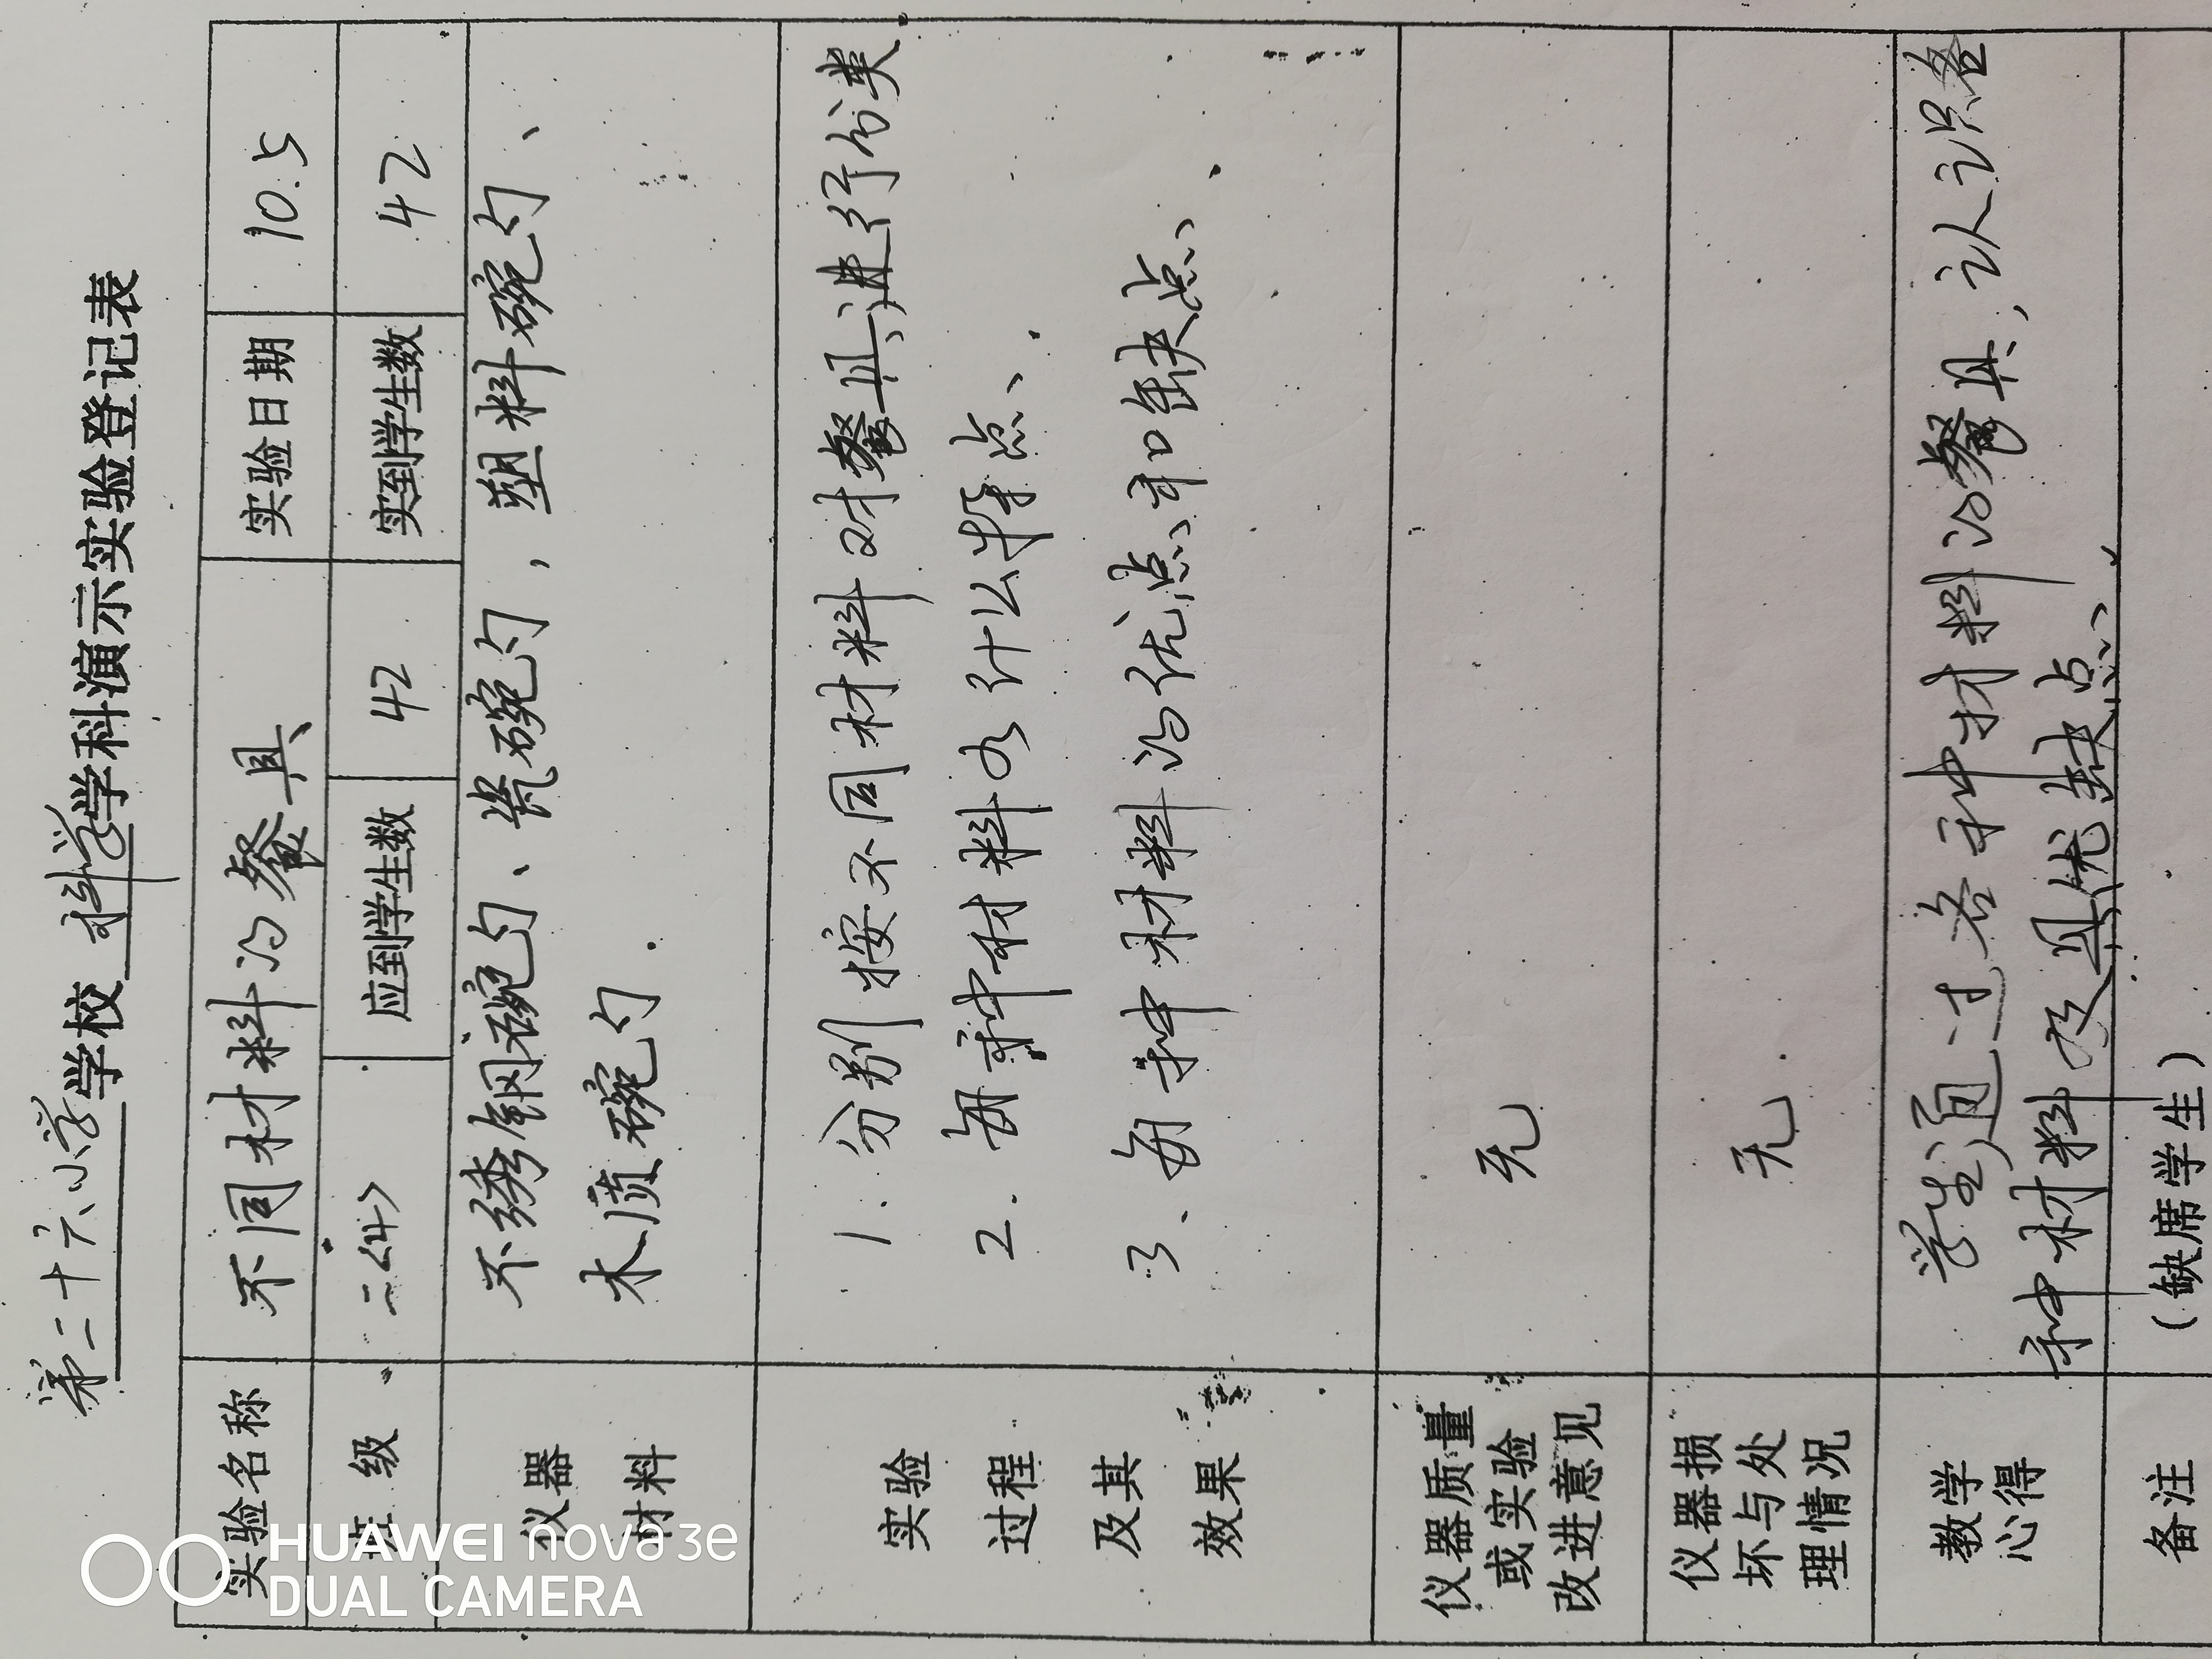 第二十六小学学校 科学学科演示实验登记表
实验名称 不同材料的餐具 实验日期 10.5
班级 二<4> 应到学生数 42 实到学生数 42
仪器
材料
不绣钢碗勺、瓷碗勺，塑料碗勺、
木质碗勺.
实验
过程
及其
效果
1. 分别按不同材料对餐具进行分类
2. 每种材料有什么特点、
3、每种材料的优点和缺点、
仪器质量
或实验
改进意见
无
仪器损
坏与处
理情况
无.
教学
心得
学生通过各种材料的餐具,认识各
种材料及其优缺点、
备注
(缺席学生)
HUAWEI nova 3e
DUAL CAMERA